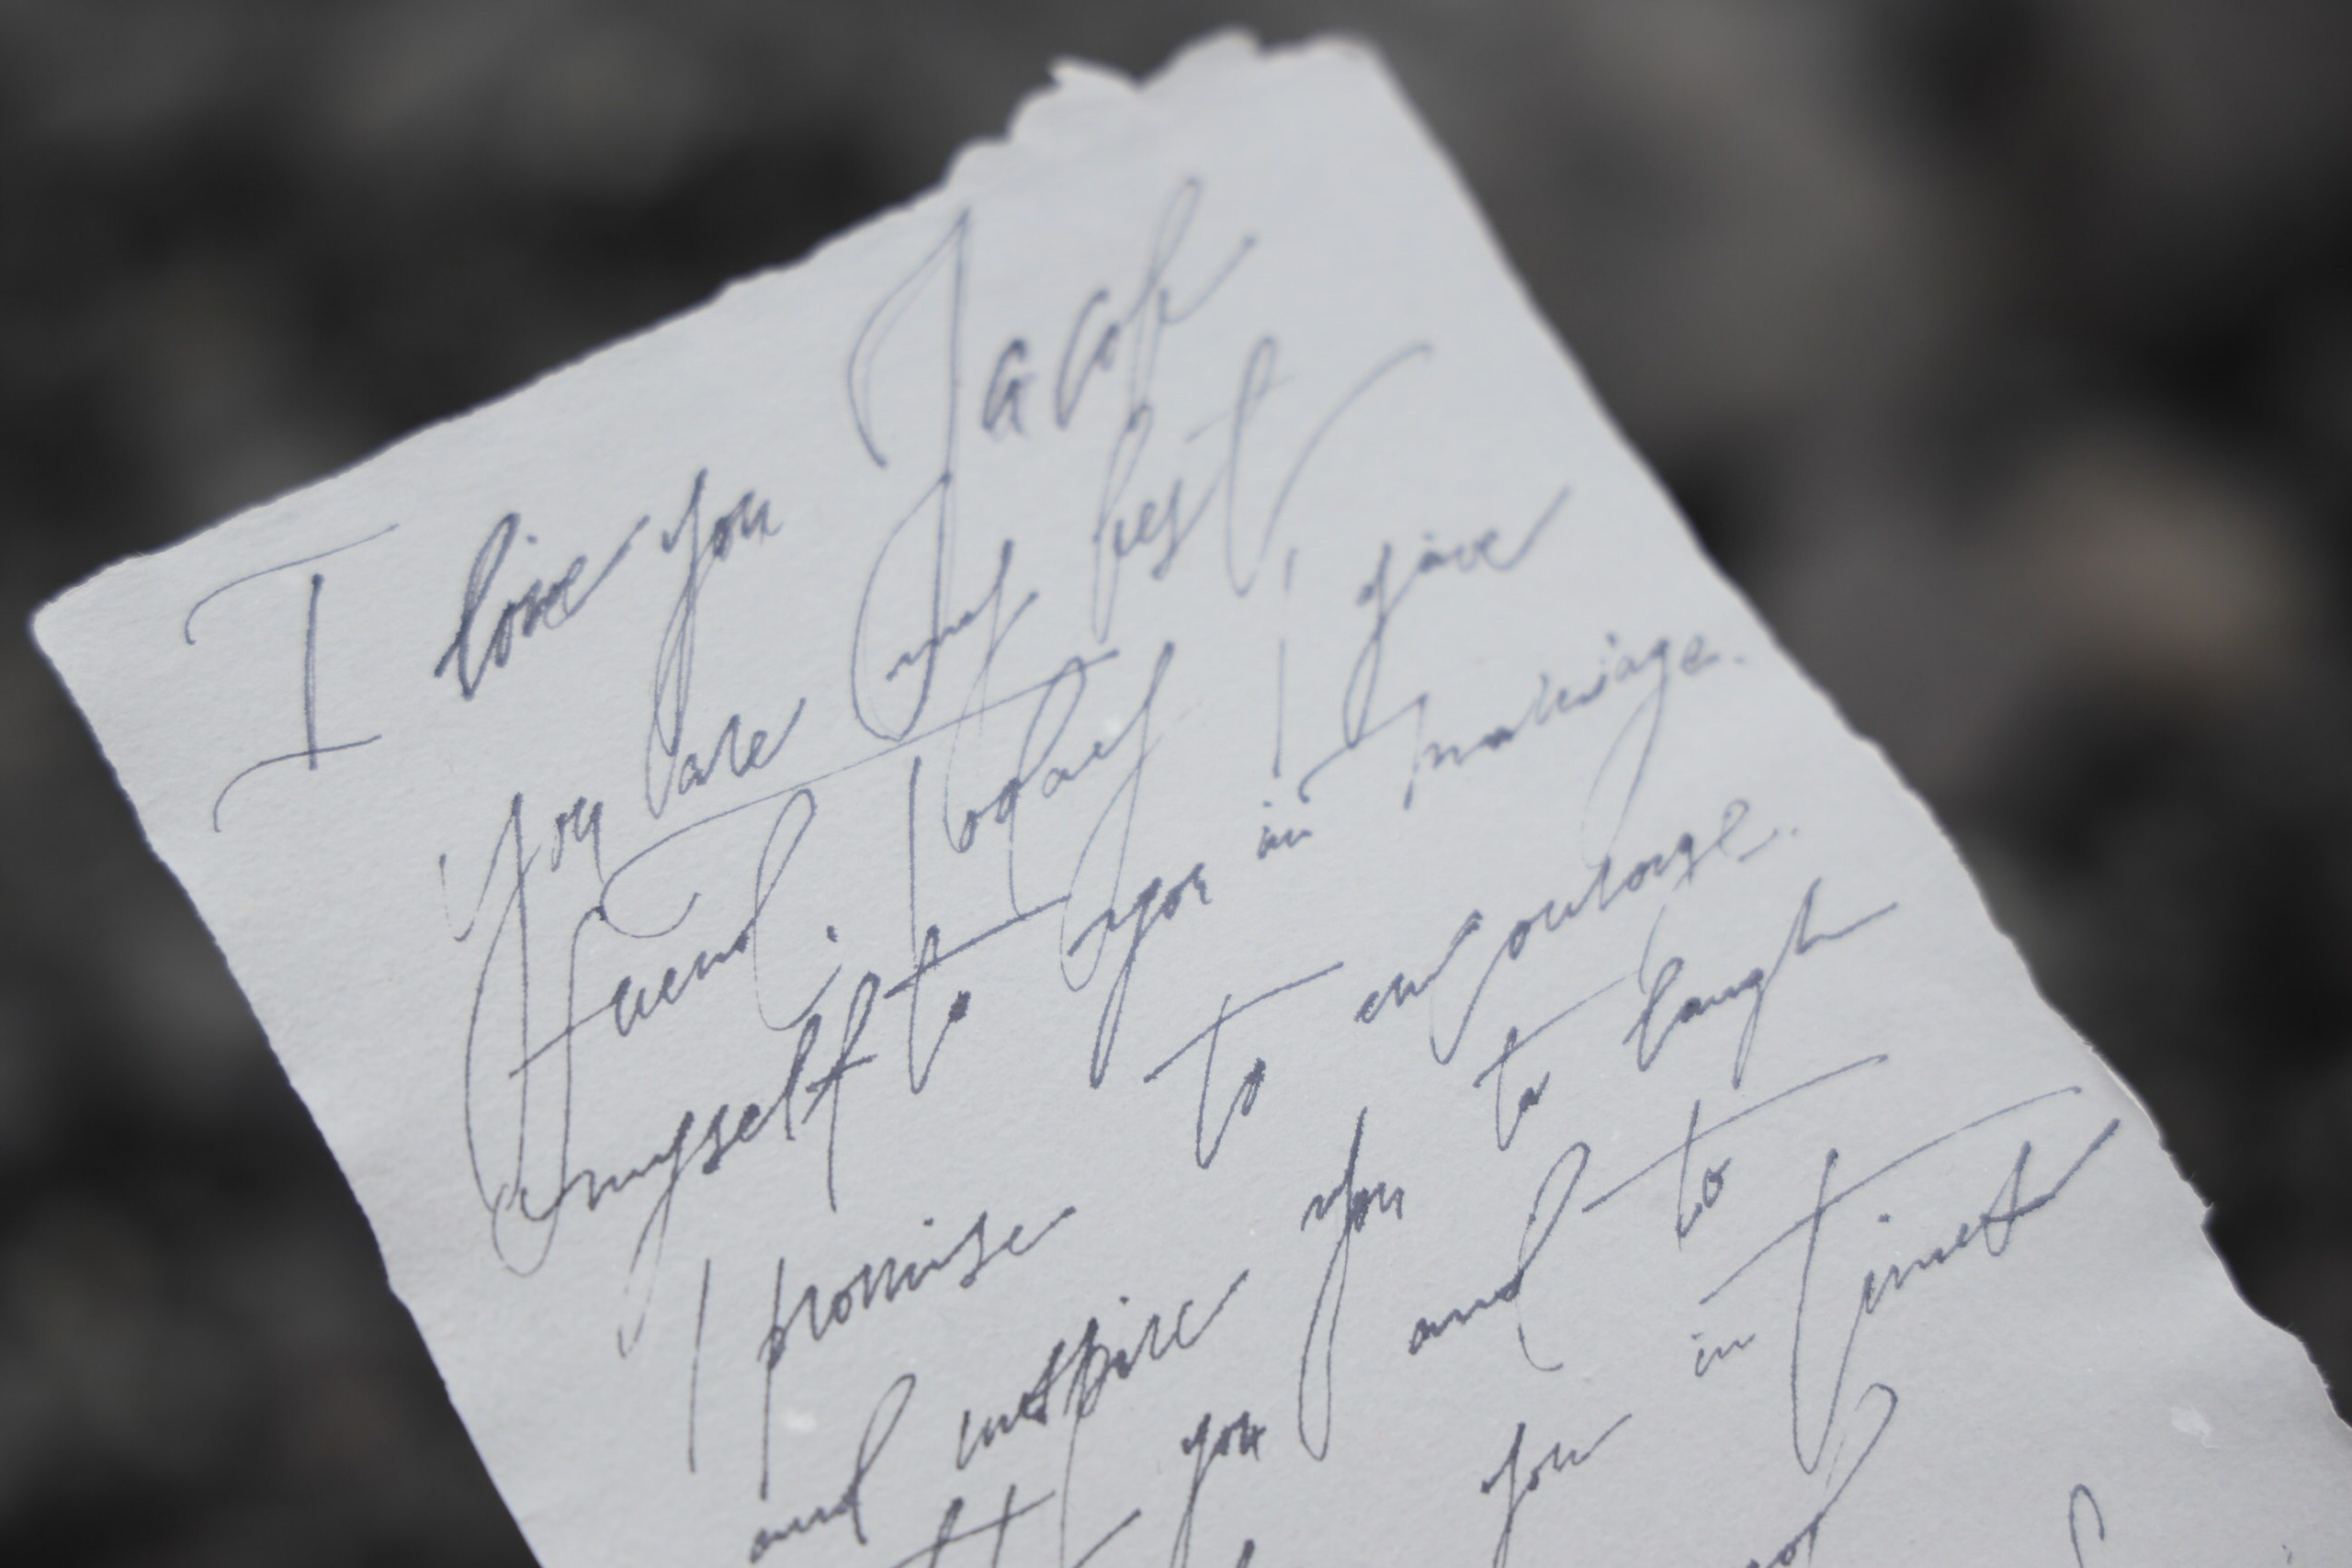 I love you Jacob
You are my best
friend. Today I give
myself to you in marriage.
I promise to encourage
and inspire you to laugh
with you and to
you in times